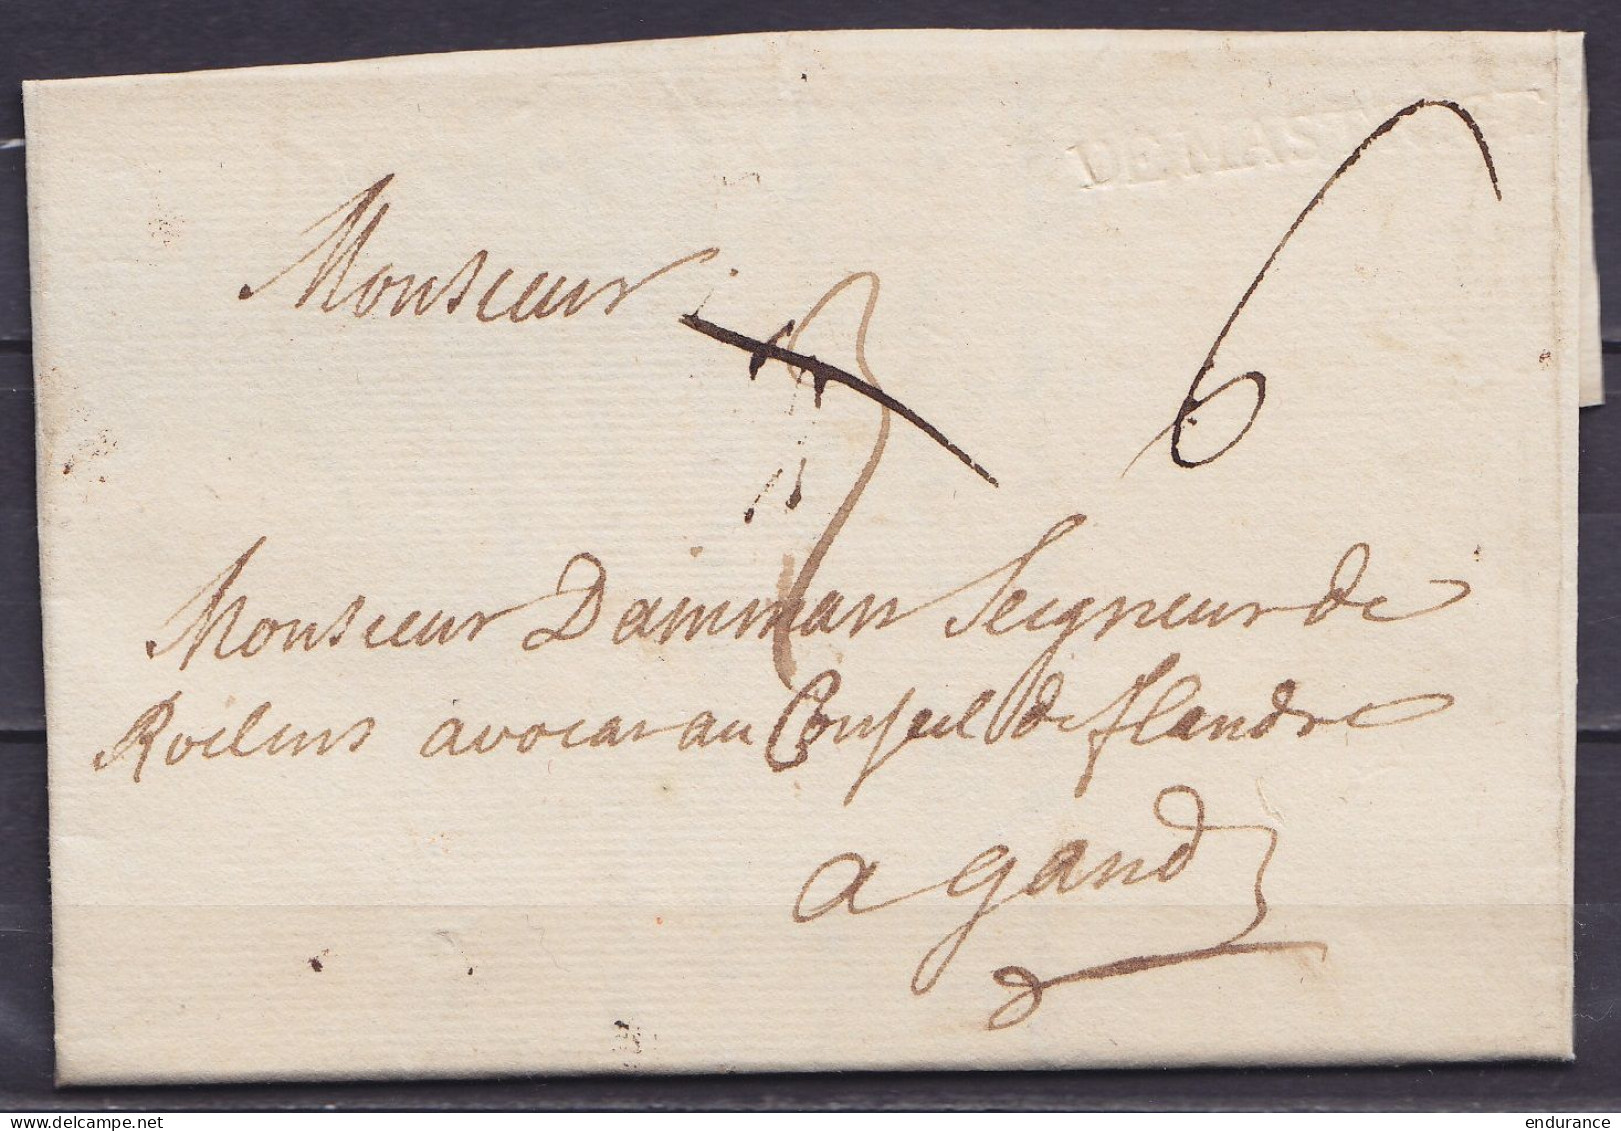 DE MAST
6
Monsieur
3
Monsieur Damman Seigneur de
Roelens avocat au Conseil de flandre
a gand
endurance